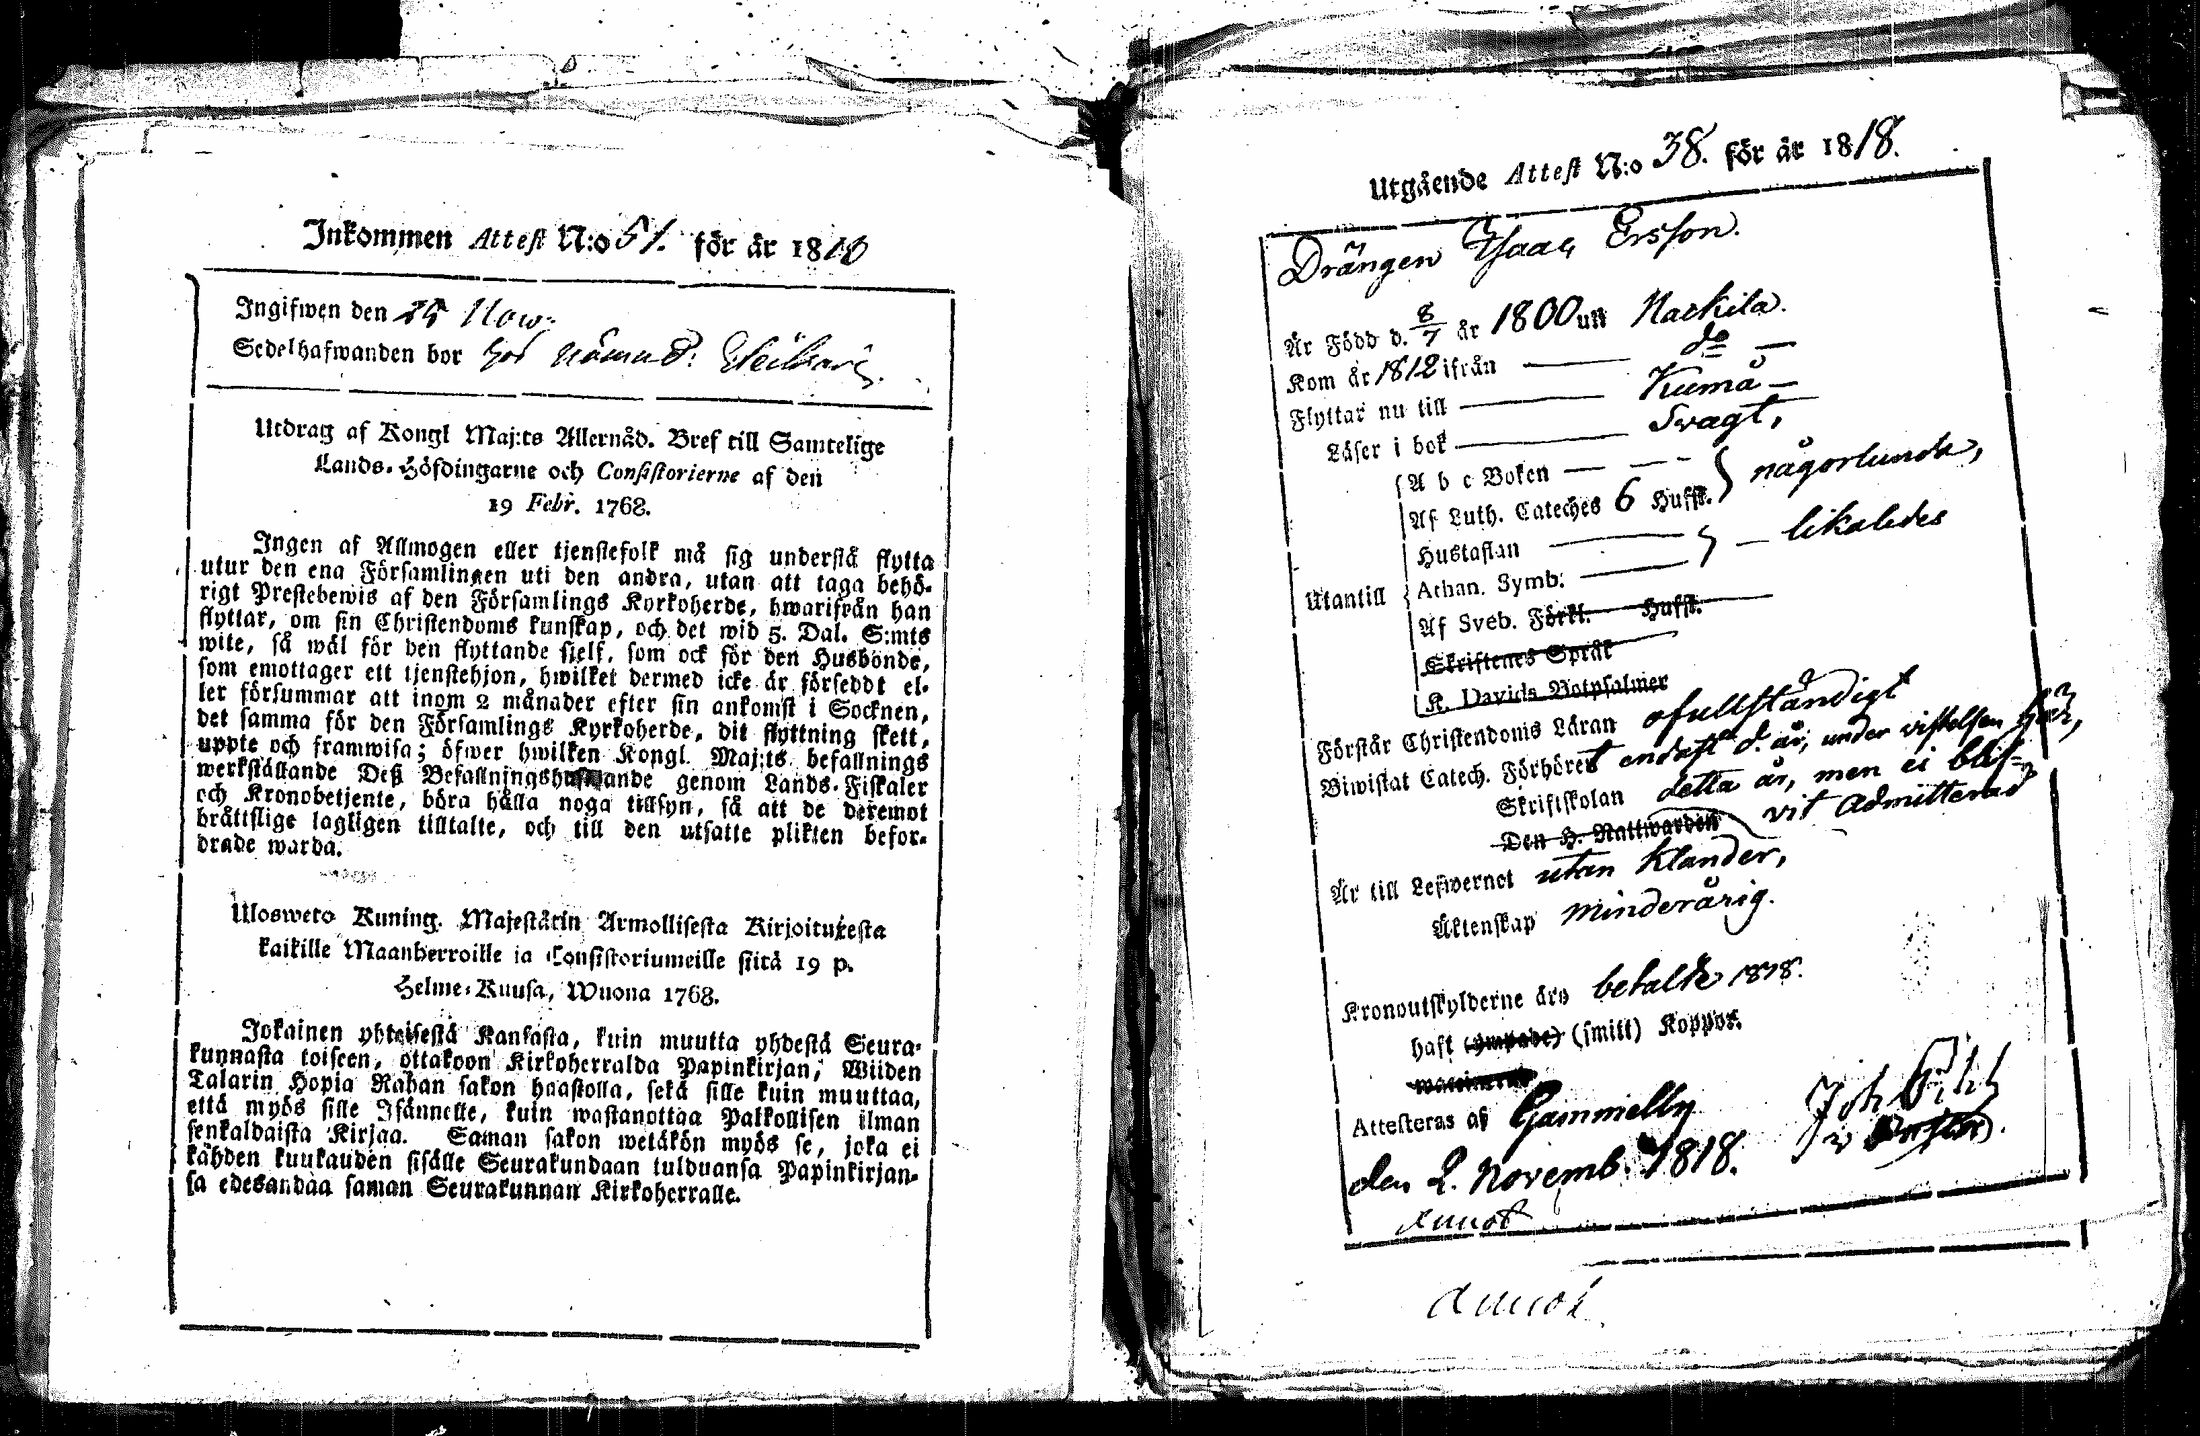 Inkommen Attest N:o 51. för år 1818
Ingifwen den 25 Now:
Sedelhafwanden bor hos
Utdrag af Kongl Maj:ts Allernåd. Bref till Samtelige
Lands-Höfdingarne och Consistorierne af den
19 Febr. 1768.
Ingen af Allmogen eller tjenstefolk må sig understå flytta
utur den ena Församlingen uti den andra, utan att taga behö-
rigt Prestebewis af den Församlings Kyrkoherde, hwarifrån han
flyttar, om sin Christendoms kunskap, och det wid 5. Dal. S:mts
wite, så wäl för den flyttande sjelf, som ock för den Husbonde,
som emottager ett tjenstehjon, hwilket dermed icke är försedt el-
ler försummar att inom 2 månader efter sin ankomst i Socknen,
det samma för den Församlings Kyrkoherde, dit flyttning skett,
uppte och framwisa; öfwer hwilken Kongl. Maj:ts befallnings
werkställande Deß Befallningshafwande genom Lands-Fiskaler
och Kronobetjente, böra hålla noga tillsyn, så att de deremot
brättslige lagligen tilltalte, och till den utsatte plikten befor-
drade warda.
Ulosweto Kuning. Majestätin Armollisesta Kirjoituxesta
kaikille Maanherroille ja Consistoriumeille siitä 19 p.
Helme-Kuusa, Wuona 1768.
Jokainen yhteisestä Kansasta, kuin muutta yhdestä Seura-
kunnasta toiseen, ottakoon Kirkoherralda Papinkirjan, Wiiden
Talarin Hopia Rahan sakon haastolla, sekä sille kuin muuttaa,
että myös sille Isännelle, kuin wastanottaa Palkollisen ilman
senkaldaista Kirjaa. Saman sakon wetäkön myös se, joka ei
kähden kuukauden sisälle Seurakundaan tulduansa Papinkirjan-
sa edesandaa saman Seurakunnan Kirkoherralle.
Utgående Attest N:o 38. för år 1818.
Drängen Isaac Ersson.
Är Född d. 8/7 år 1800 uti Nackila.
Kom år 1812 ifrån — do —
Flyttar nu till — Kumå —
Läser i bok — Svagt,
A b c Boken — — —
Af Luth. Cateches 6 Hufst. } någorlunda,
Hustaflan — } — likaledes
Athan. Symb: —
Utantill
Af Sveb. Förkl. Hufst.
Skriftenes Språk
K. Davids Botpsalmer
Förstår Christendoms Läran ofullständigt
Biwistat Catech. Förhöret endast d. år, under vistelsen här,
Skriftskolan detta år, men ei blif-
Den H. Nattwarden vit Admitterad
Är till Lefwernet utan klander,
Äktenskap minderårig.
Kronoutskylderne äro betalte 1818.
haft (ympade) (smitt) Koppor.
Attesteras af Gammelby
den 2. Novemb. 1818.